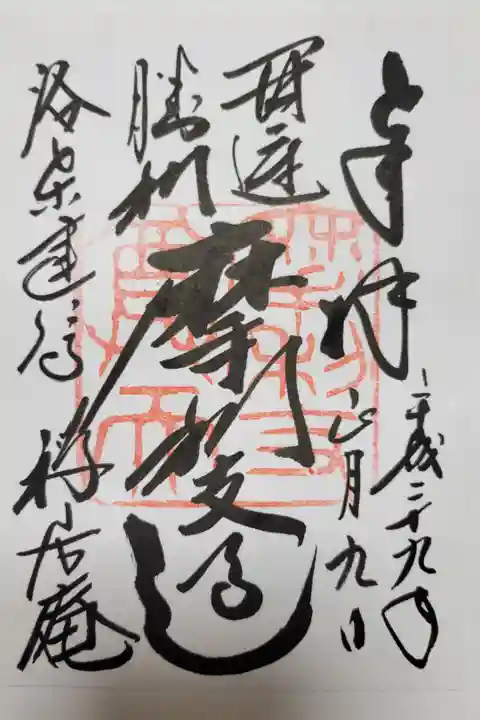 奉拝
平成二十九年
正月九日
開運
勝利
摩利支
洛東建仁寺
禅居庵